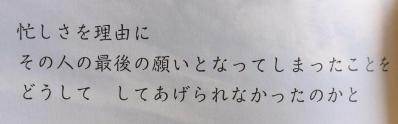 忙しさを理由に
その人の最後の願いとなってしまったことを
どうして　してあげられなかったのかと